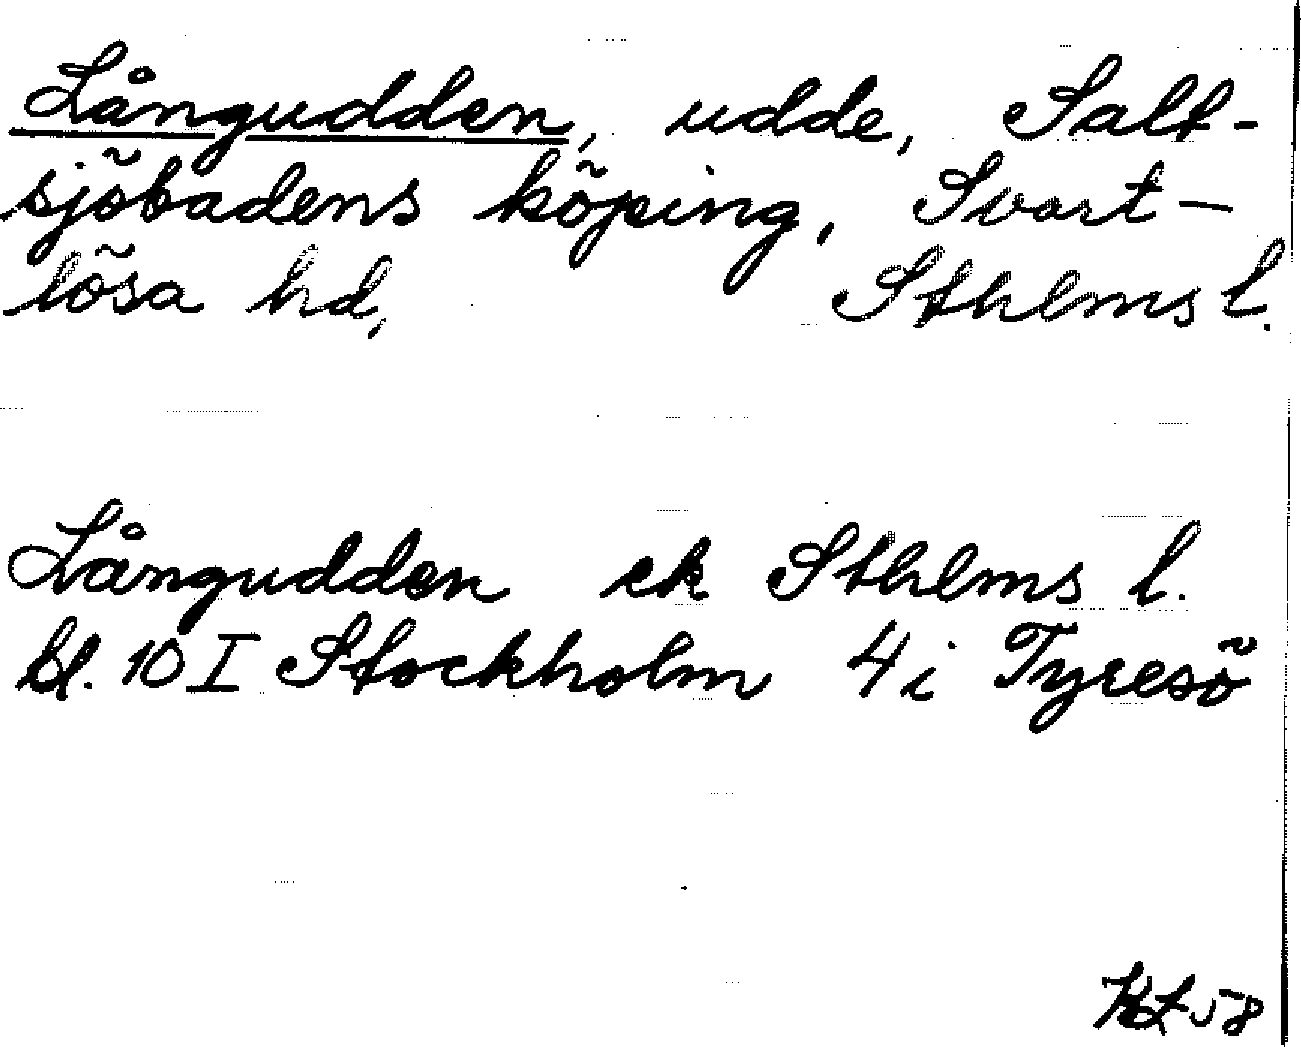 Långudden, udde, Salt-
sjöbadens köping, Svart-
lösa hd, Sthlms l.
Långudden ek Sthlms l.
bl. 10 I Stockholm 4 i Tyresö
HL 58